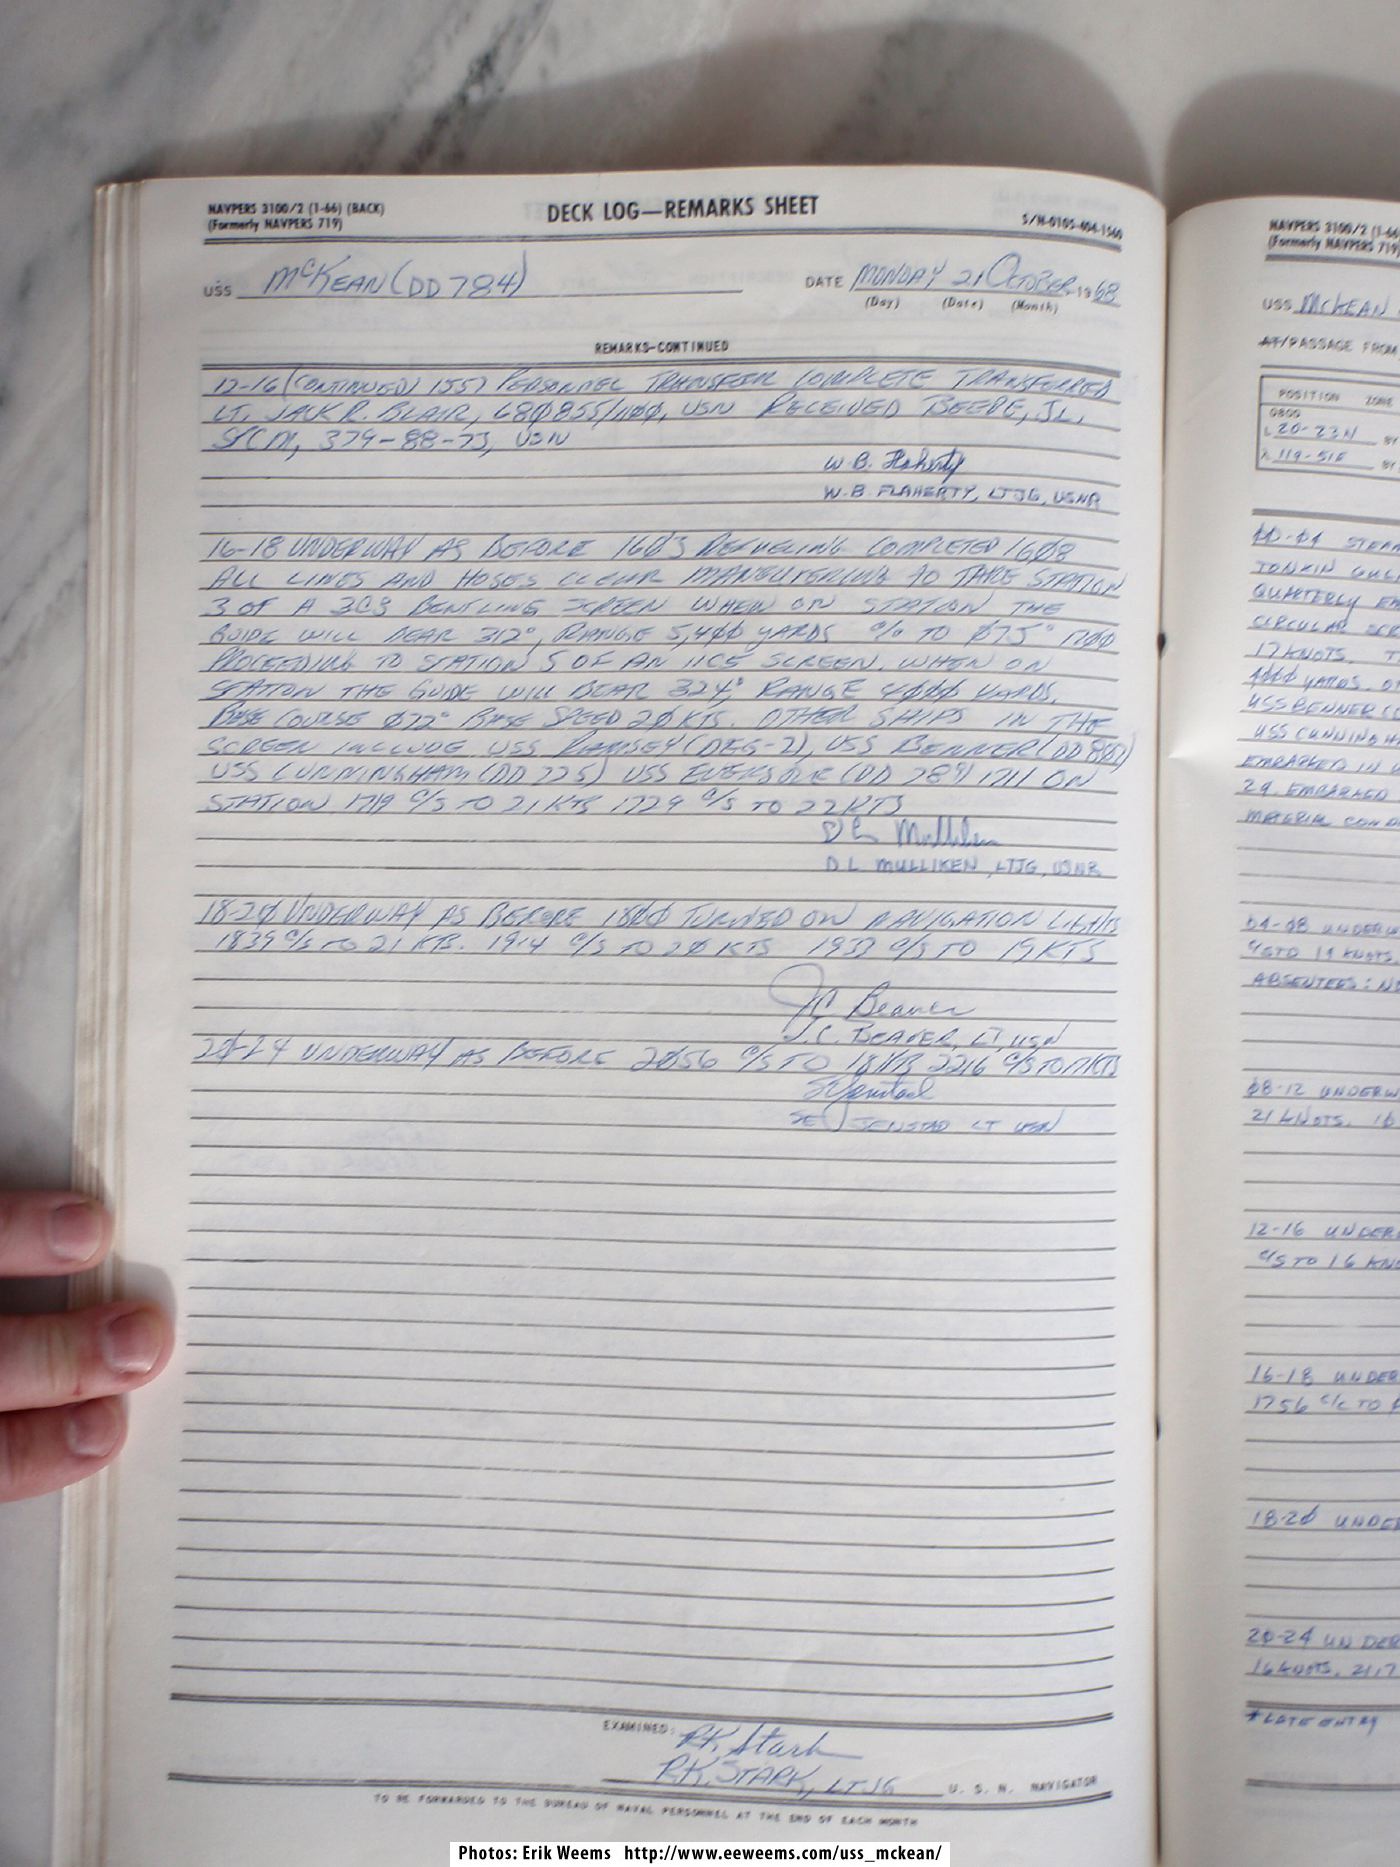 NAVPERS 3100/2 (1-66) (BACK)
(Formerly NAVPERS 719)
DECK LOG—REMARKS SHEET
S/N-0105-404-1560
USS McKEAN (DD 784)
DATE MONDAY 21 OCTOBER, 1968
(Day) (Date) (Month)
REMARKS-CONTINUED
12-16 (CONTINUED) 1557 PERSONNEL TRANSFER COMPLETE TRANSFERRED
LT. JACK R. BLAIR, 68Ø855/11ØØ, USN RECEIVED BEEBE, J.L.
379-88-73, USN
W.B. Flaherty
W.B. FLAHERTY, LTJG, USNR
16-18 UNDERWAY AS BEFORE 16Ø3 REFUELING COMPLETED 16Ø8
ALL LINES AND HOSES CLEAR MANEUVERING TO TAKE STATION
3 OF A SCREEN WHEN ON STATION THE
GUIDE WILL BEAR 312°, RANGE 5,4ØØ YARDS C/C TO Ø75° 17ØØ
PROCEEDING TO STATION 5 OF AN SCREEN. WHEN ON
STATION THE GUIDE WILL BEAR 324°, RANGE 4ØØØ YARDS.
BASE COURSE Ø72° BASE SPEED 2Ø KTS. OTHER SHIPS IN THE
SCREEN INCLUDE USS RAMSEY (DEG-2), USS BENNER (DD 8Ø7)
USS CUNNINGHAM (DD 725) USS EVERSOLE (DD 789) 1711 ON
STATION 1719 C/S TO 21 KTS 1729 C/S TO 22 KTS
D L Mulliken
D L MULLIKEN, LTJG, USNR
18-2Ø UNDERWAY AS BEFORE 18ØØ TURNED ON NAVIGATION LIGHTS
1839 C/S TO 21 KTS. 1914 C/S TO 2Ø KTS 1933 C/S TO 19 KTS
JC Beaver
J.C. BEAVER, LT, USN
2Ø-24 UNDERWAY AS BEFORE 2Ø56 C/S TO 18 KTS 2216 C/S TO 17 KTS
SE Jenstad
SE JENSTAD LT USN
EXAMINED:
RK Stark
R.K. STARK, LTJG U. S. N. NAVIGATOR
TO BE FORWARDED TO THE BUREAU OF NAVAL PERSONNEL AT THE END OF EACH MONTH
NAVPERS 3100/2 (1-66
(Formerly NAVPERS 719)
USS McKEAN
AT/PASSAGE FROM
POSITION ZONE
0800
L 20-23N BY
λ 119-51E BY
ØØ-Ø4 STEA
TONKIN GUL
QUARTERLY
CIRCULAR SCR
17 KNOTS. T
4ØØØ YARDS.
USS BENNER
USS CUNNINGH
EMBARKED IN
29. EMBARKED
MATERIAL COND
Ø4-Ø8 UNDERW
C/S TO 19 KNOTS.
ABSENTEES: NO
Ø8-12 UNDERW
21 KNOTS. 1Ø
12-16 UNDER
C/S TO 16 KNO
16-18 UNDER
1756 C/C TO
18-2Ø UNDE
2Ø-24 UNDER
16 KNOTS, 2117
*LATE ENTRY
Photos: Erik Weems http://www.eeweems.com/uss_mckean/